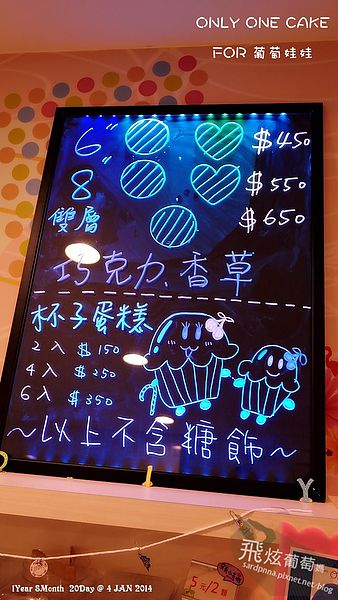 ONLY ONE CAKE
FOR 葡萄娃娃
6" $450
8" $550
雙層 $650
巧克力、香草
杯子蛋糕
2入 $150
4入 $250
6入 $350
~以上不含糖飾~
5元/2顆
飛炫葡萄媽
sardpnna.pixnet.net/blog
1Year 8Month 20Day @ 4 JAN 2014